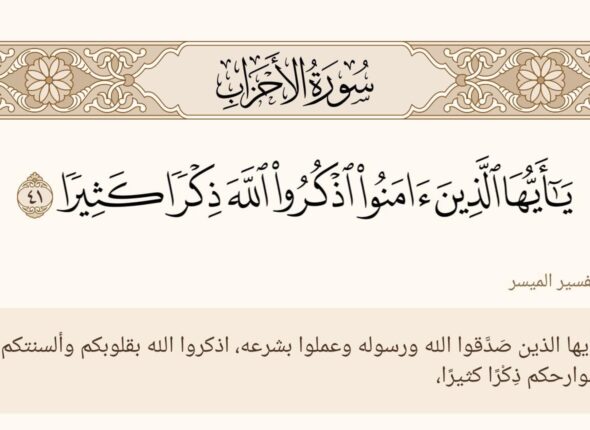 سُورَةُ الأَحْزَابِ
يَـٰٓأَيُّهَا ٱلَّذِينَ ءَامَنُوا۟ ٱذْكُرُوا۟ ٱللَّهَ ذِكْرًا كَثِيرًا ٤١
فسير الميسر
يها الذين صَدَّقوا الله ورسوله وعملوا بشرعه، اذكروا الله بقلوبكم وألسنتكم
وارحكم ذِكْرًا كثيرًا،